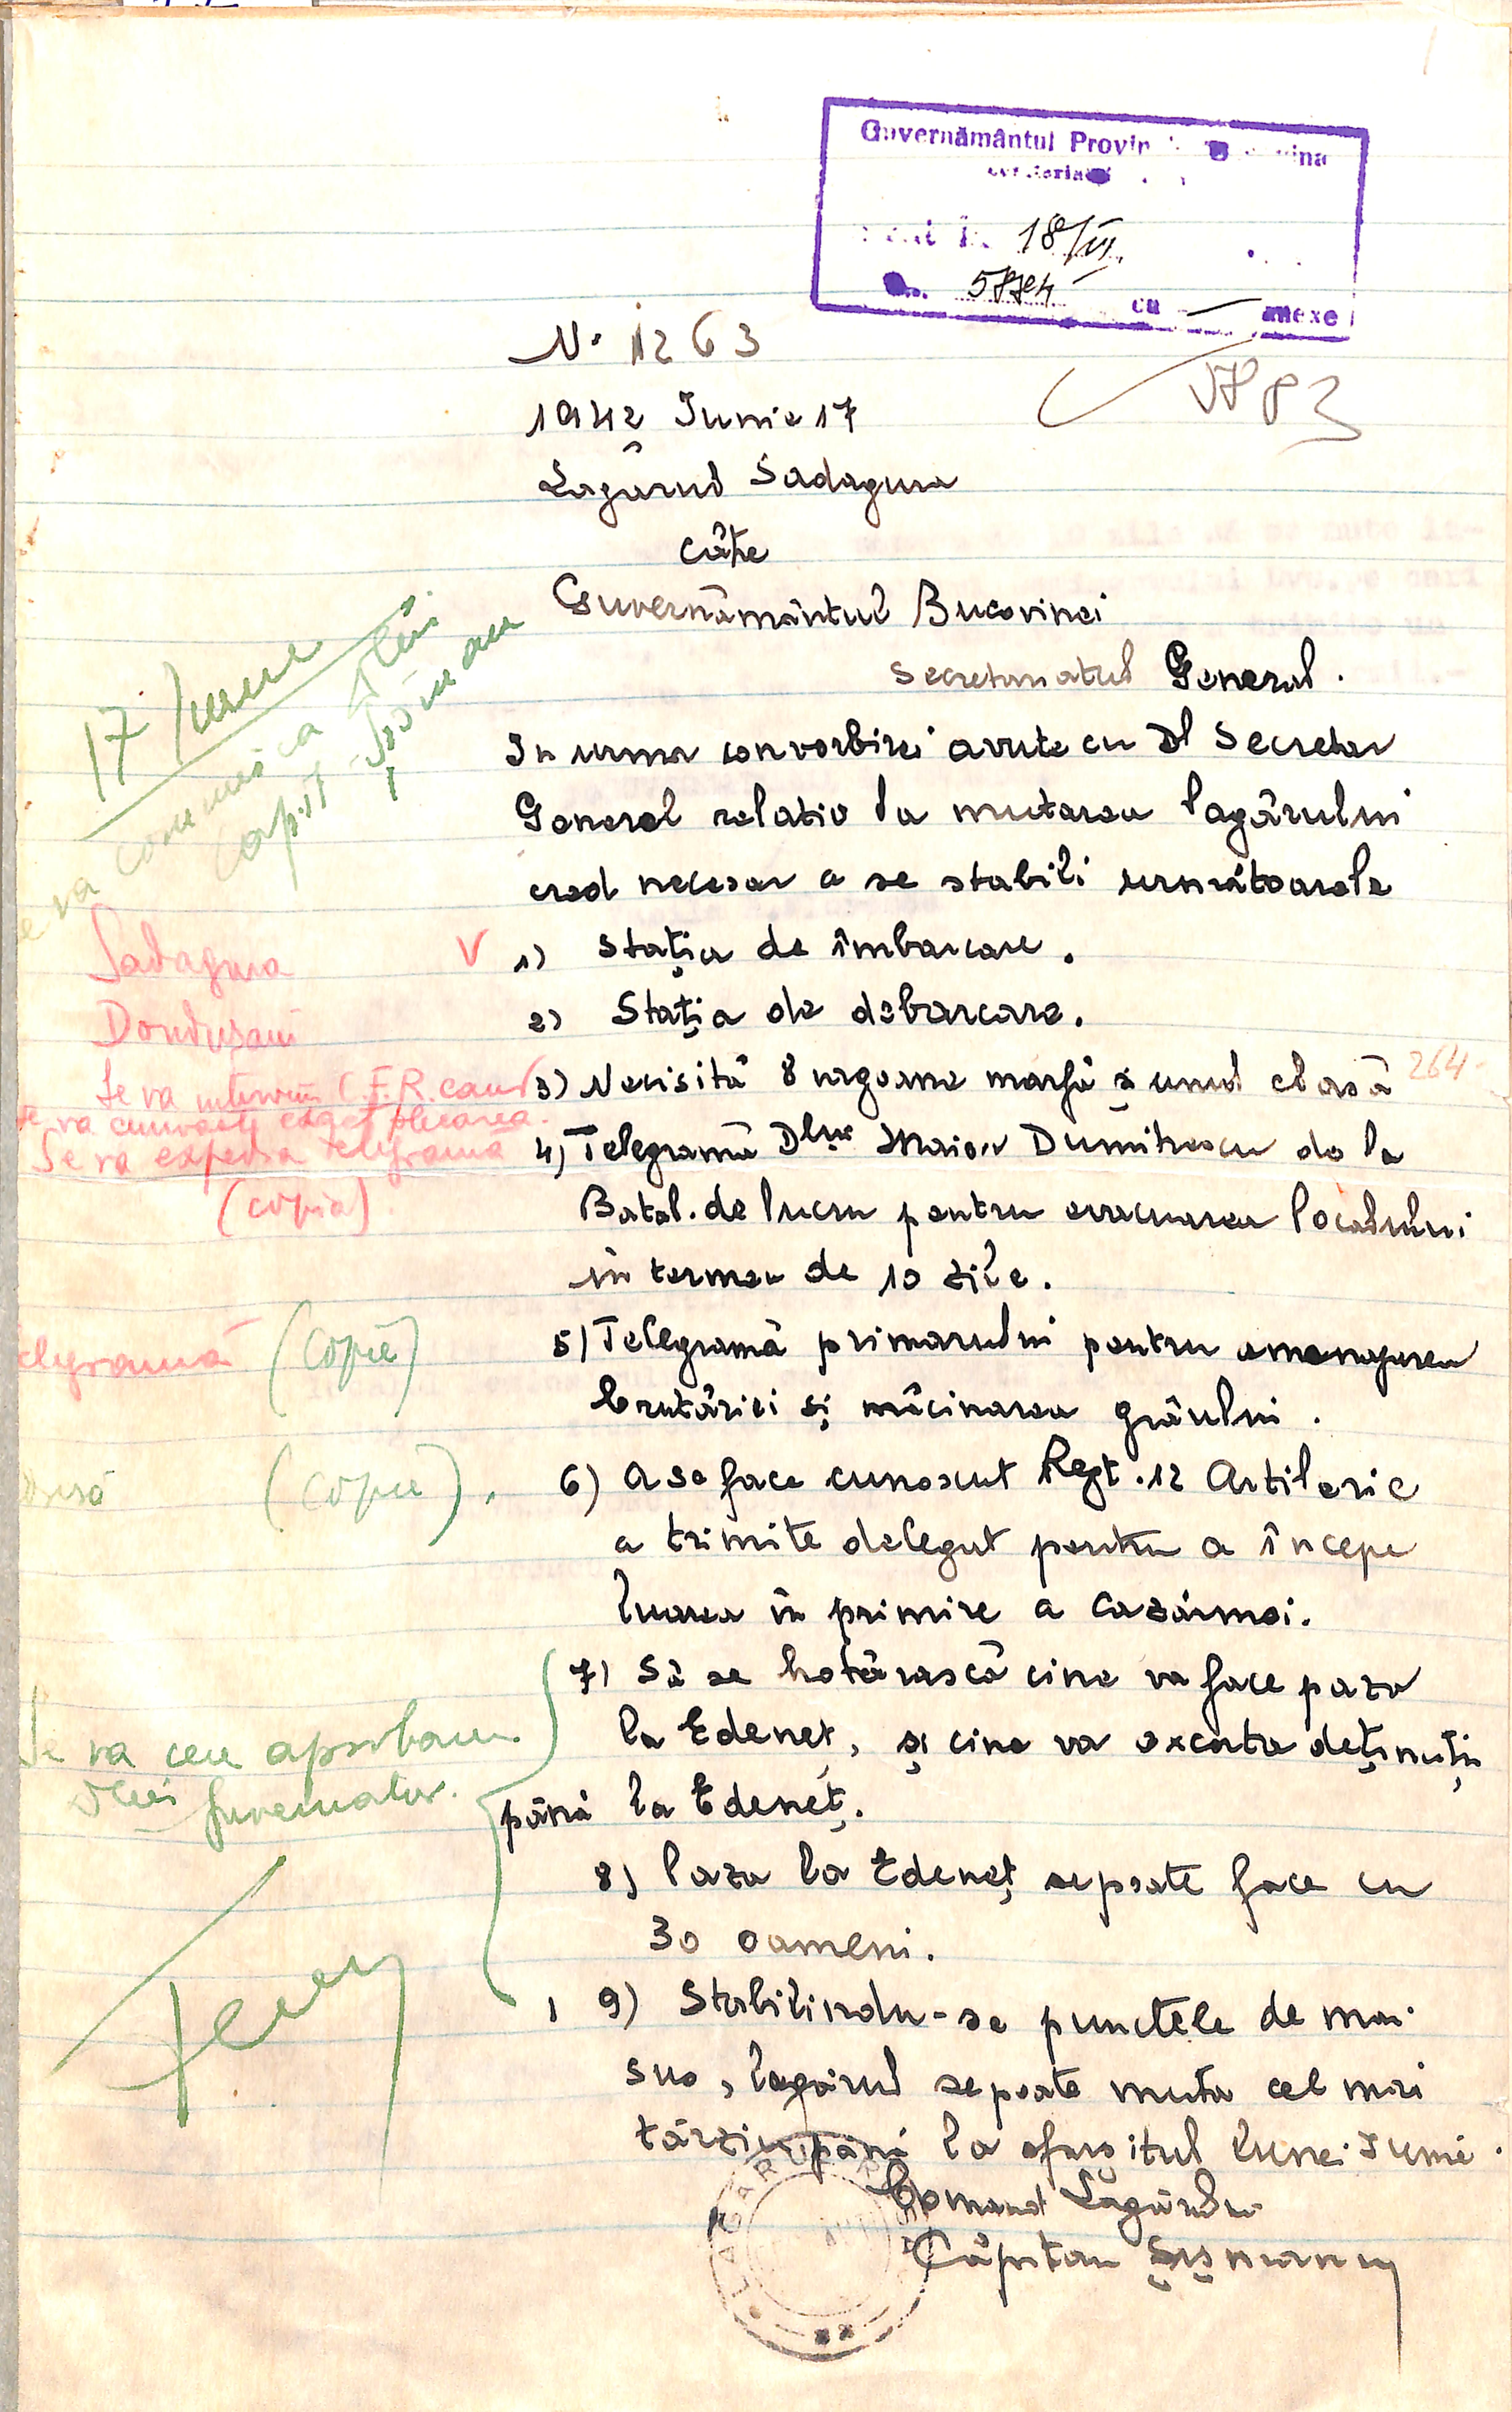 Guvernământul
18/VI.
cu — anexe
No 1263
5783
1942 Iunie 17
Lagărul Sadagura
câtre
Guvernământul Bucovinei
Secretariatul General.
17 Iunie
Se va comunica
Capit. Șișman
In urma convorbirei avute cu Dl Secretar
General relativ la mutarea lagărului
cred necesar a se stabili următoarele
Sadagura
V 1) Stația de îmbarcare.
Dondușani
2) Stația de debarcare.
Se va interveni C.F.R. când
se va cunoaște exact plecarea.
3) Necisită 8 vagoane marfă și unul clasă
264
Se va expedia telegrama
(copia)
4) Telegramă Dlui Maior Dumitrescu de la
Batal. de lucru pentru evacuarea localului
în termen de 10 zile.
telegramă (copie)
5) Telegramă primarului pentru amenajarea
brutăriei și măcinarea grâului.
(copie).
6) A se face cunoscut Regt. 12 Artilerie
a trimite delegat pentru a începe
luarea în primire a cazărmei.
7) Să se hotărască cine va face paza
la Edeneț, și cine va excorta deținuții
până la Edeneț.
Se va cere aprobarea
Dlui Guvernator.
8) Paza la Edeneț se poate face cu
30 oameni.
9) Stabilindu-se punctele de mai
sus, lagărul se poate muta cel mai
târziu până la sfârșitul lunei Iunie.
Comand Lagărului
Căpitan Șișman
LAGĂRUL